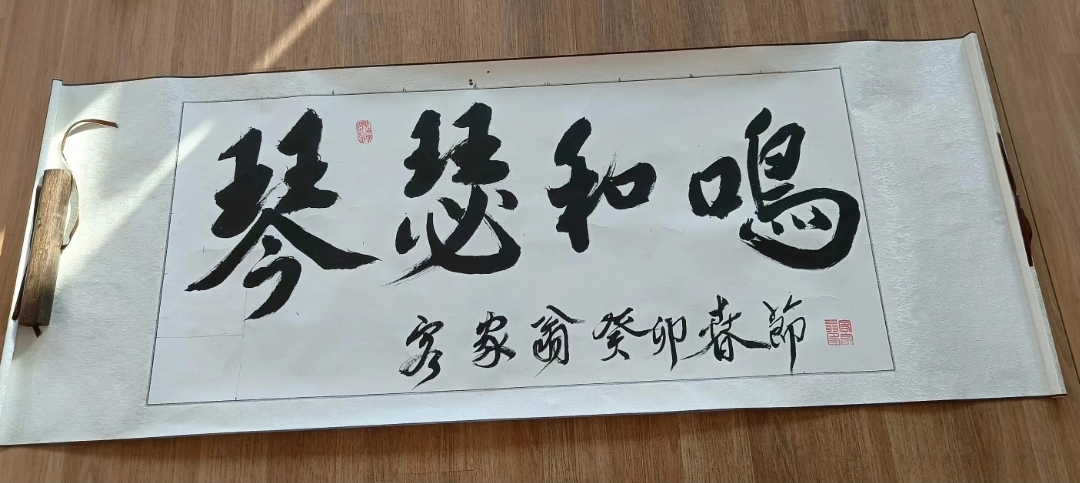 琴瑟和鳴
客家翁癸卯春節